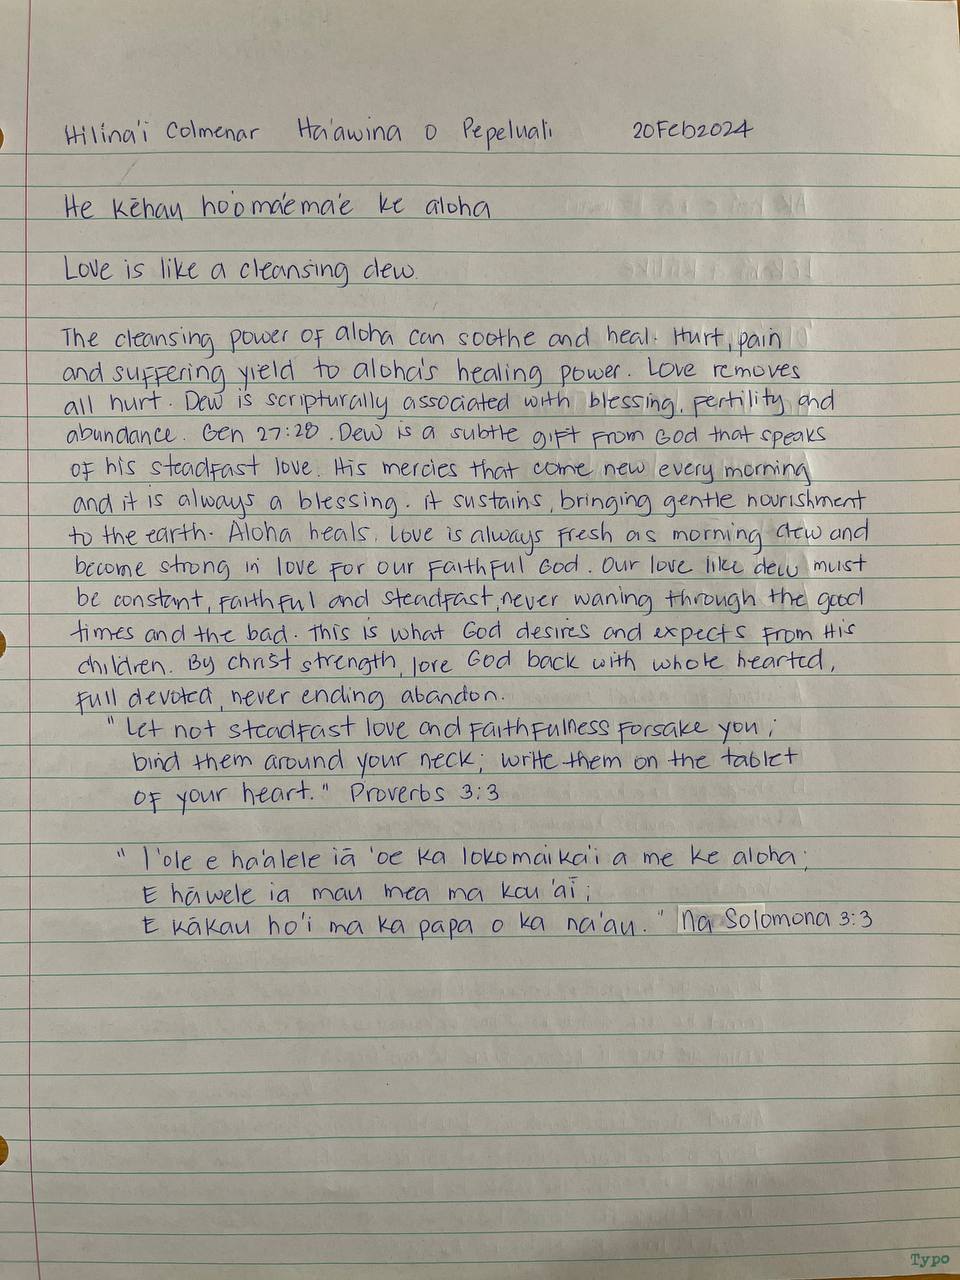 Hilina'i Colmenar Ha'awina o Pepeluali 20Feb2024
He Kēhau ho'oma'ema'e ke aloha
Love is like a cleansing dew.
The cleansing power of aloha can soothe and heal. Hurt, pain
and suffering yield to aloha's healing power. Love removes
all hurt. Dew is scripturally associated with blessing, fertility and
abundance. Gen 27:28. Dew is a subtle gift from God that speaks
of his steadfast love. His mercies that come new every morning
and it is always a blessing. it sustains, bringing gentle nourishment
to the earth. Aloha heals. Love is always fresh as morning dew and
become strong in love for our faithful God. Our love like dew must
be constant, faithful and steadfast, never waning through the good
times and the bad. This is what God desires and expects from His
children. By Christ strength, love God back with whole hearted,
full devoted, never ending abandon.
"Let not steadfast love and faithfulness forsake you;
bind them around your neck; write them on the tablet
of your heart." Proverbs 3:3
"I 'ole e ha'alele iā 'oe ka lokomaika'i a me ke aloha;
E hāwele ia mau mea ma kou 'aī;
E kākau ho'i ma ka papa o ka na'au." Na Solomona 3:3
Typo